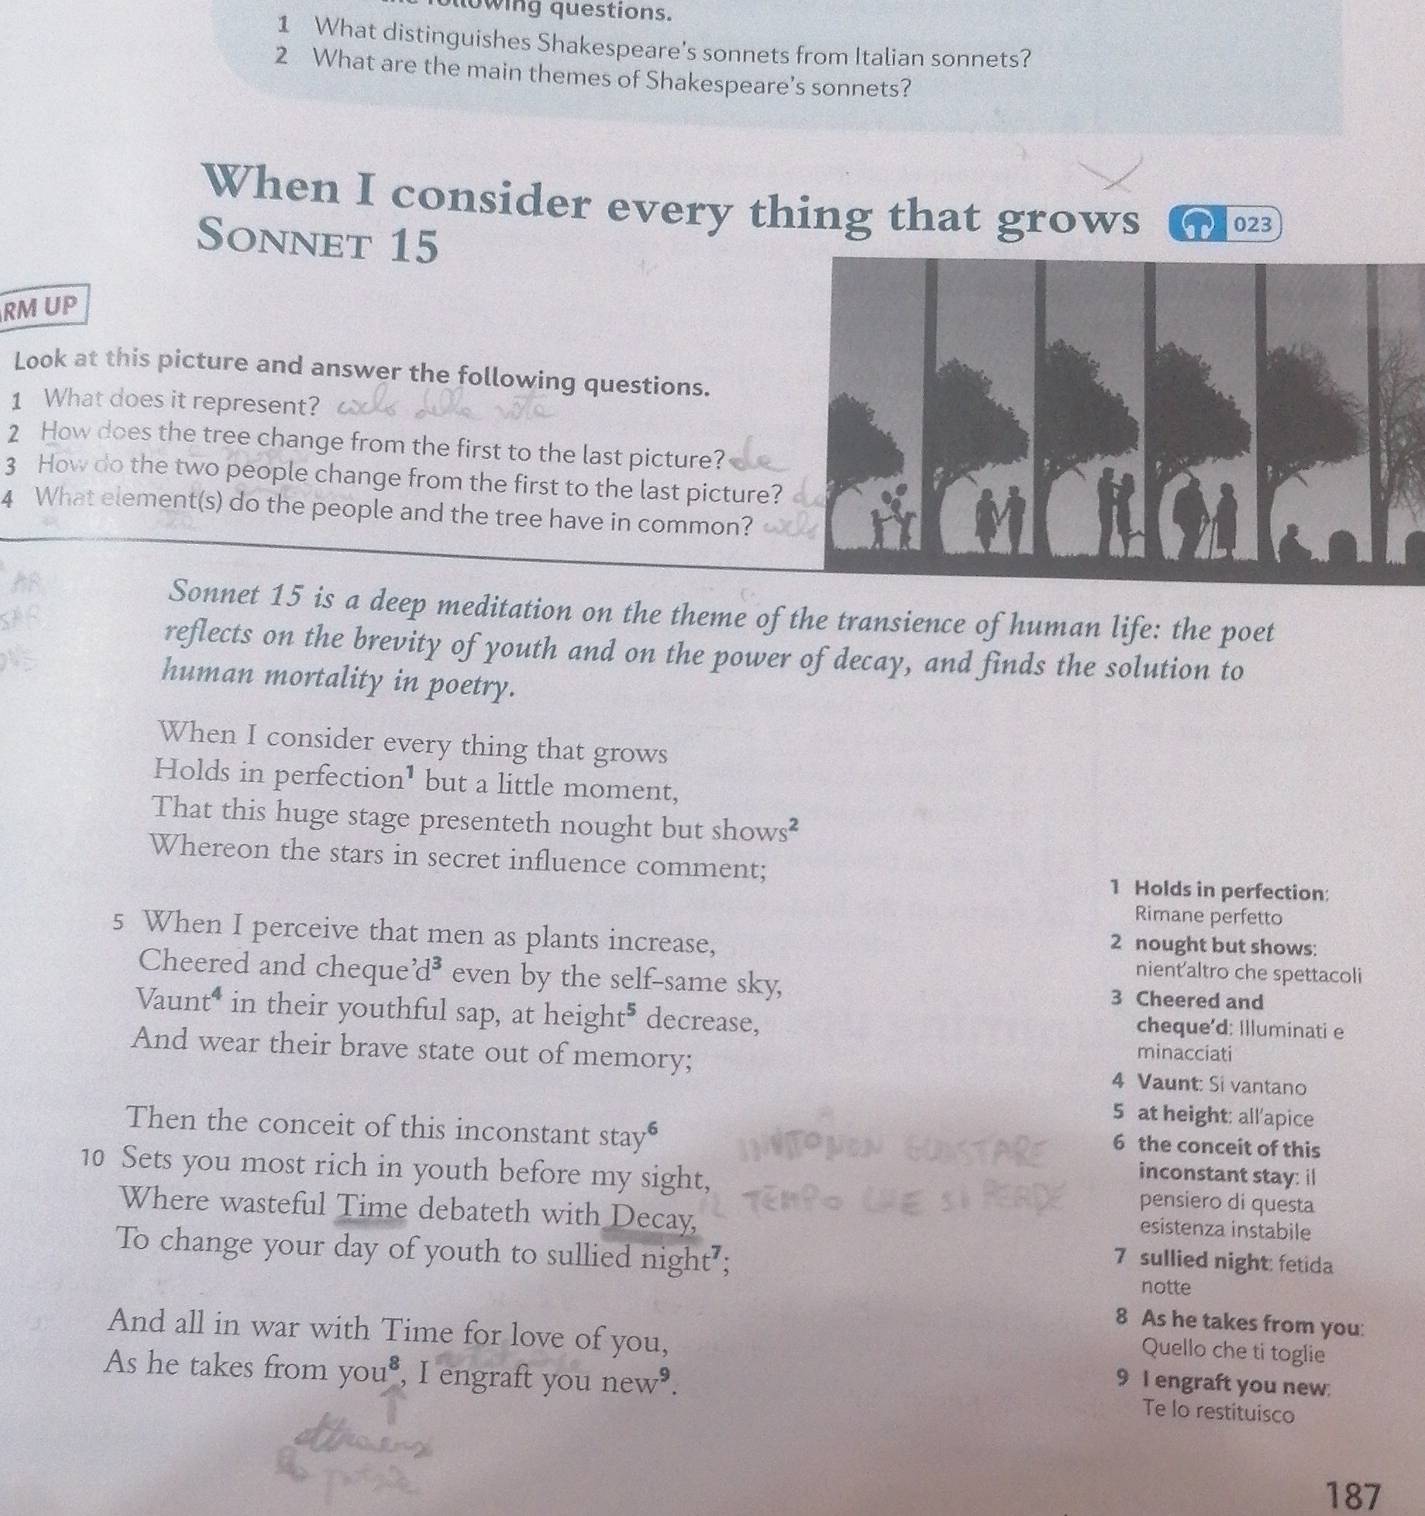 following questions.
1 What distinguishes Shakespeare's sonnets from Italian sonnets?
2 What are the main themes of Shakespeare's sonnets?
When I consider every thing that grows 023
SONNET 15
RM UP
Look at this picture and answer the following questions.
1 What does it represent? ciclo della vita
2 How does the tree change from the first to the last picture? da
3 How do the two people change from the first to the last picture?
4 What element(s) do the people and the tree have in common?
Sonnet 15 is a deep meditation on the theme of the transience of human life: the poet
reflects on the brevity of youth and on the power of decay, and finds the solution to
human mortality in poetry.
When I consider every thing that grows
Holds in perfection¹ but a little moment,
That this huge stage presenteth nought but shows²
Whereon the stars in secret influence comment;
5 When I perceive that men as plants increase,
Cheered and cheque'd³ even by the self-same sky,
Vaunt⁴ in their youthful sap, at height⁵ decrease,
And wear their brave state out of memory;
Then the conceit of this inconstant stay⁶
10 Sets you most rich in youth before my sight,
Where wasteful Time debateth with Decay,
IL TEMPO CHE SI PERDE
To change your day of youth to sullied night⁷;
And all in war with Time for love of you,
As he takes from you⁸, I engraft you new⁹.
attraverso
la poesia
1 Holds in perfection:
Rimane perfetto
2 nought but shows:
nient'altro che spettacoli
3 Cheered and
cheque'd: Illuminati e
minacciati
4 Vaunt: Si vantano
5 at height: all'apice
6 the conceit of this
inconstant stay: il
pensiero di questa
esistenza instabile
7 sullied night: fetida
notte
8 As he takes from you:
Quello che ti toglie
9 I engraft you new:
Te lo restituisco
187